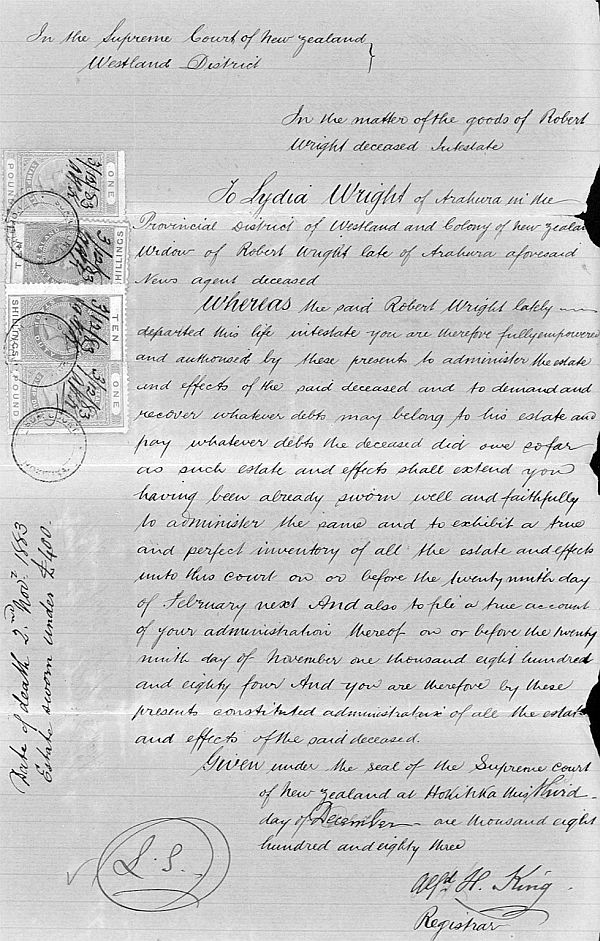 In the Supreme Court of New Zealand
Westland District
In the matter of the goods of Robert
Wright deceased Intestate
To Lydia Wright of Arahura in the
Provincial District of Westland and Colony of New Zealan
Widow of Robert Wright late of Arahura aforesaid
News agent deceased
Whereas the said Robert Wright lately
departed this life intestate you are therefore fully empowered
and authorised by these presents to administer the estate
and effects of the said deceased and to demand and
recover whatever debts may belong to his estate and
pay whatever debts the deceased did owe so far
as such estate and effects shall extend you
having been already sworn well and faithfully
to administer the same and to exhibit a true
and perfect inventory of all the estate and effects
unto this court on or before the twenty ninth day
of February next And also to file a true account
of your administration thereof on or before the twenty
ninth day of November one thousand eight hundred
and eighty four And you are therefore by these
presents constituted administratrix of all the estate
and effects of the said deceased.
Given under the seal of the Supreme Court
of New Zealand at Hokitika this third
day of December one thousand eight
hundred and eighty three
Alfd. H. King
Registrar
L.S.
Date of death 2nd Novr. 1883
Estate sworn under £400.
POUND ONE
3/12/83
TEN SHILLINGS
3/12/83
SHILLINGS TEN
3/12/83
POUND ONE
3/12/83